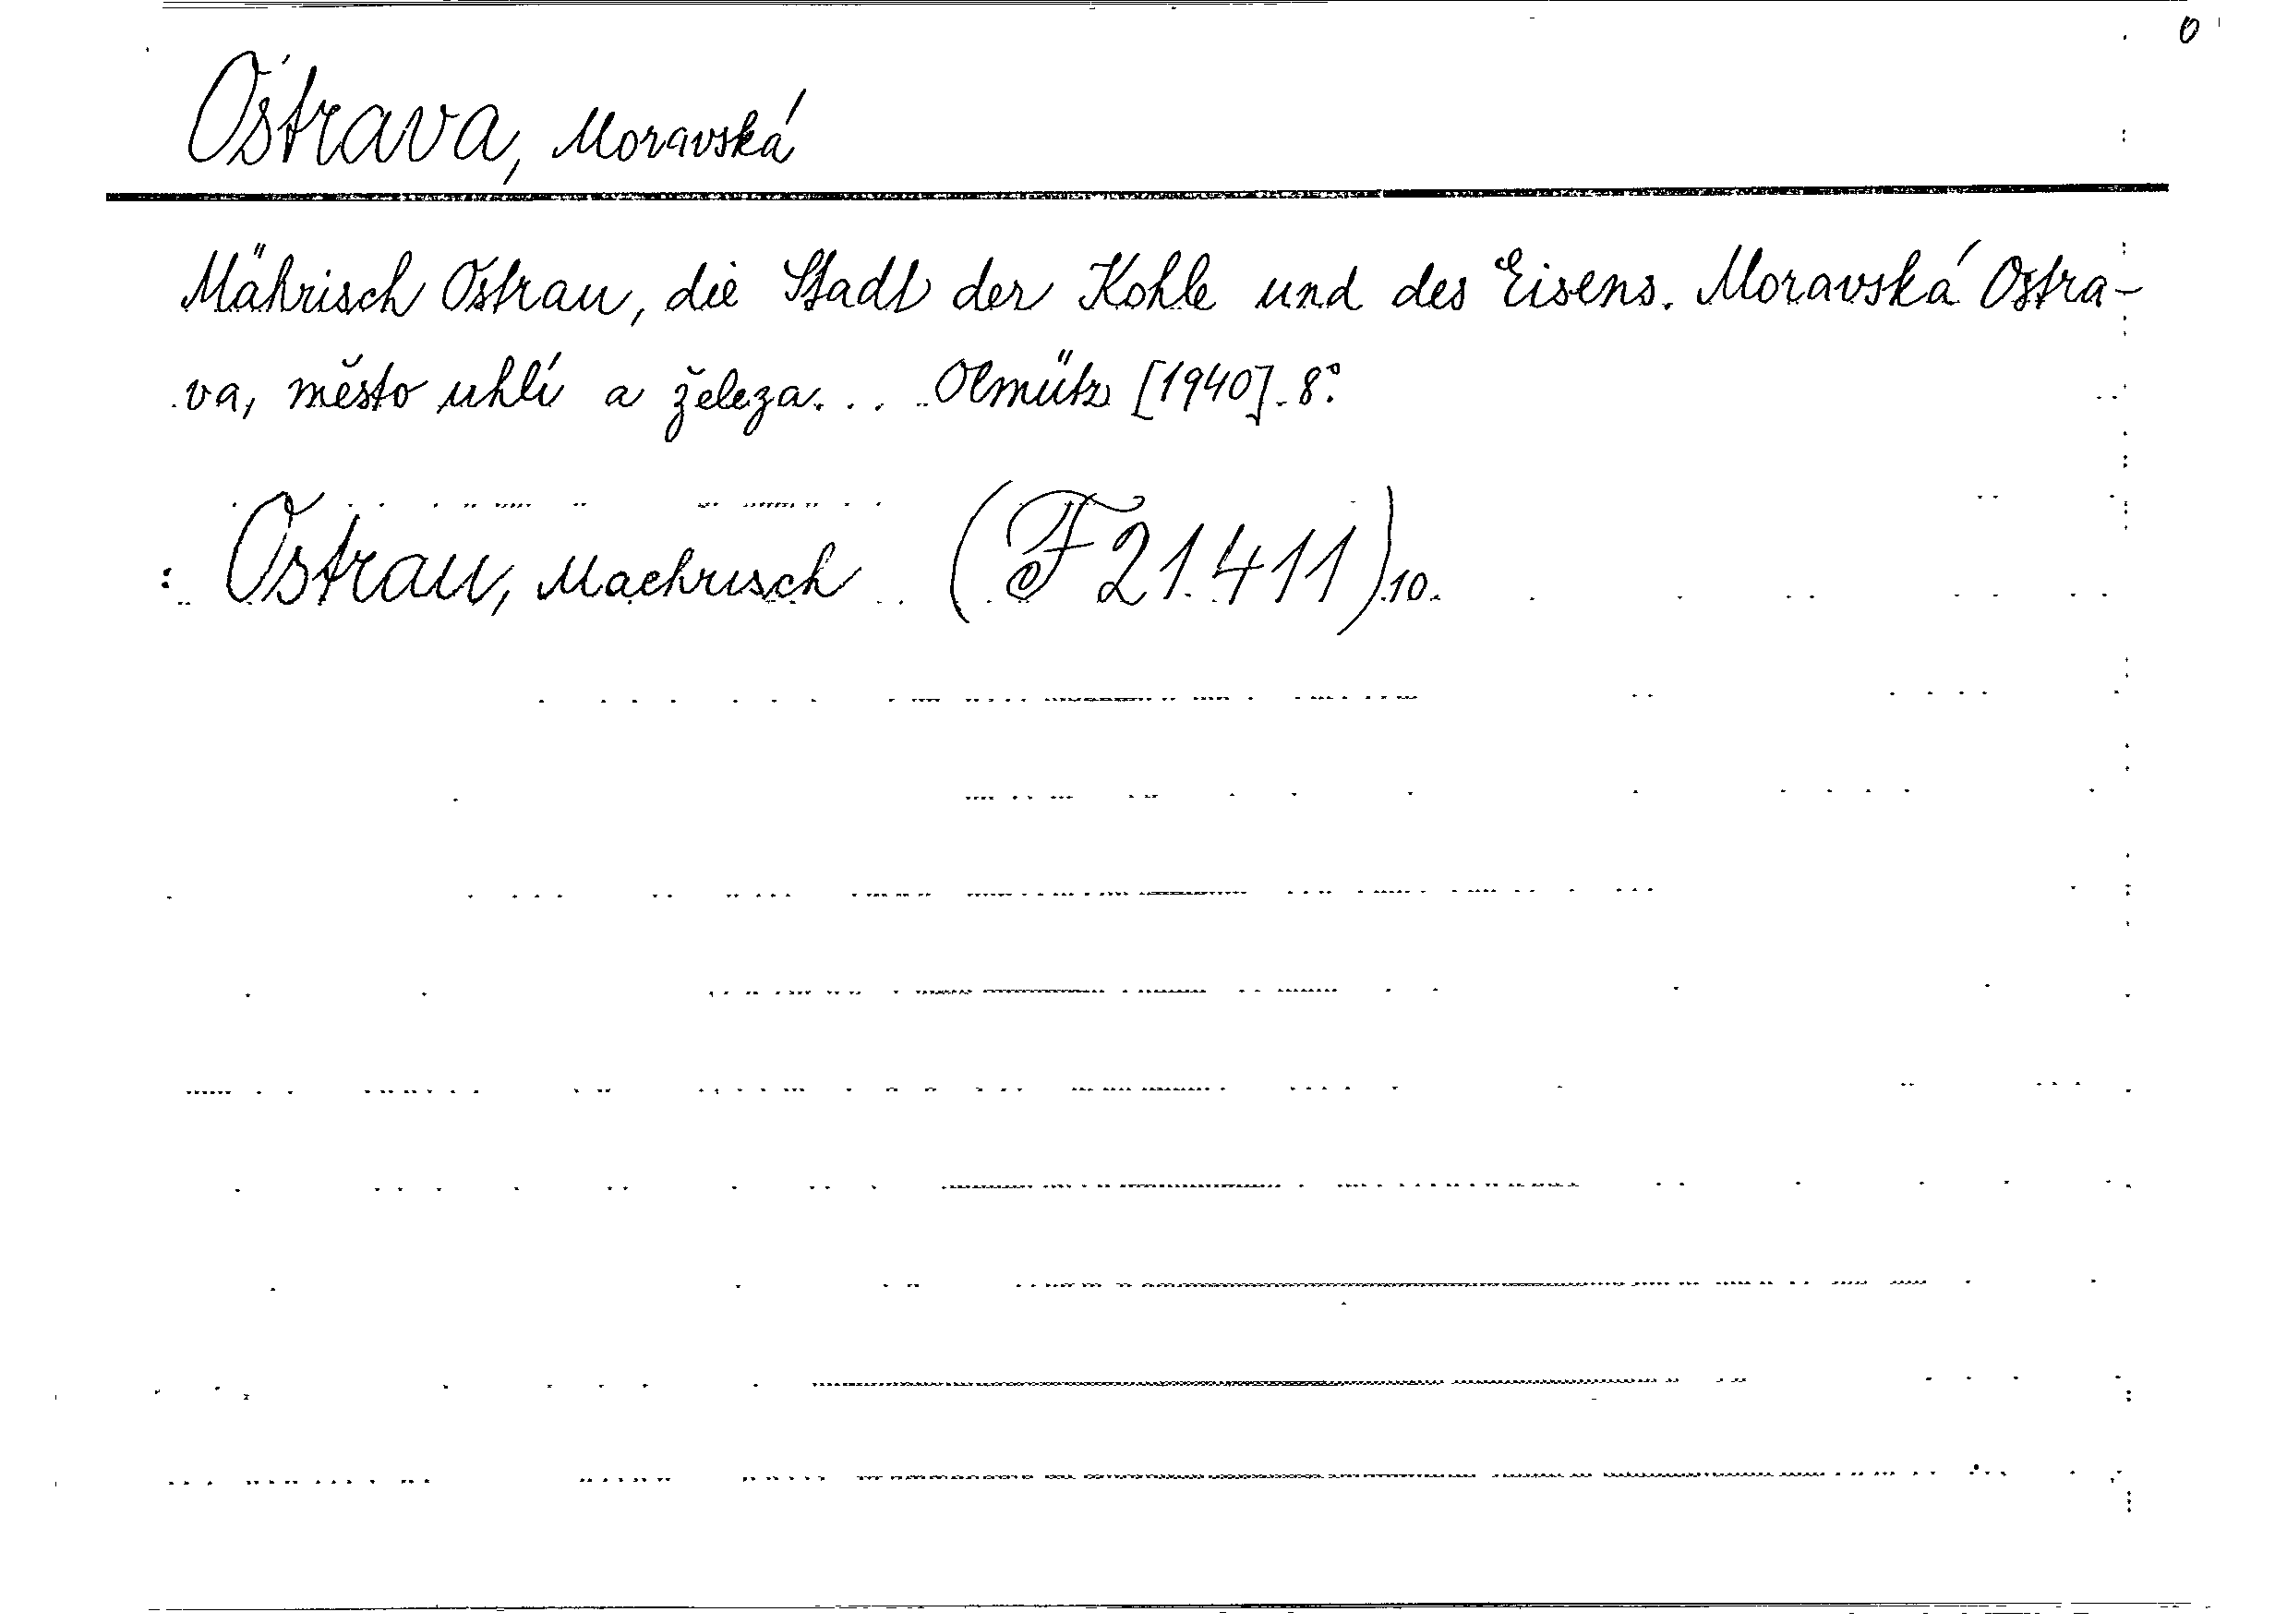 O
Ostrava, Moravská
Mährisch Ostrau, die Stadt der Kohle und des Eisens. Moravská Ostra-
va, město uhlí a železa... Olmütz [1940]. 8°.
Ostrau, Maehrisch (F 21.411) 10.